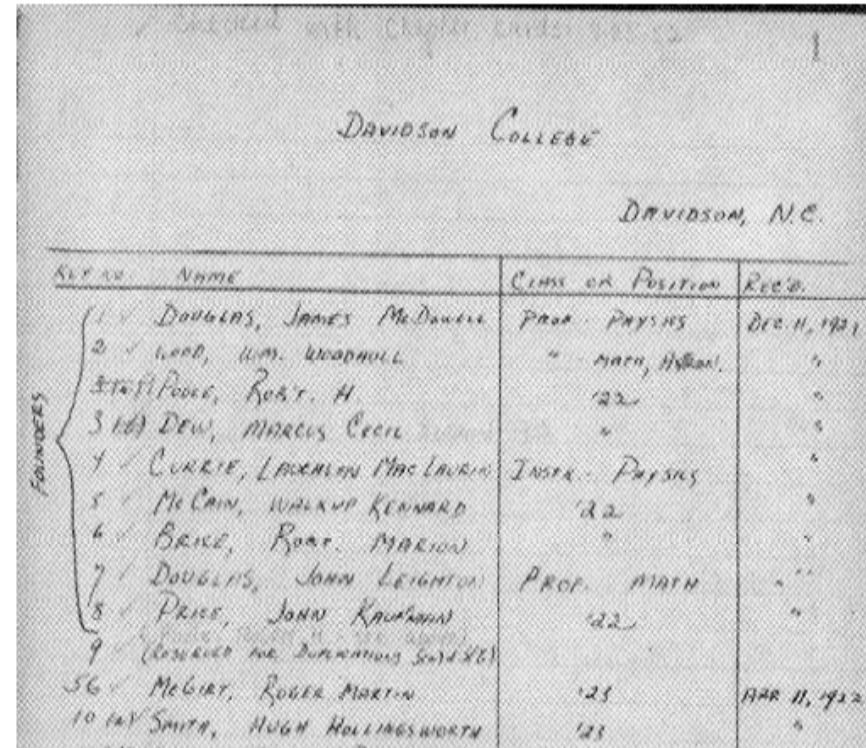 1
DAVIDSON COLLEGE
DAVIDSON, N.C.
KEY NO. NAME CLASS OR POSITION REC'D.
FOUNDERS
1 ✓ DOUGLAS, JAMES McDOWELL PROF. - PHYSICS DEC. 11, 1921
2 ✓ WOOD, WM. WOODHULL " - MATH, ASTRON. "
POOLE, ROB'T. H. '22 "
3 DEW, MARCUS CECIL " "
4 ✓ CURRIE, LAUCHLAN MACLAURIN INSTR. - PHYSICS "
5 ✓ McCAIN, WALKUP KENNARD '22 "
6 ✓ BRICE, ROBT. MARION " "
7 ✓ DOUGLAS, JOHN LEIGHTON PROF. MATH "
8 ✓ PRICE, JOHN KAUFMAN '22 "
9 ✓ (RESERVED FOR DUPLICATIONS
56 ✓ McGIRT, ROGER MARTIN '23 APR 11, 1922
10 SMITH, HUGH HOLLINGSWORTH '23 "